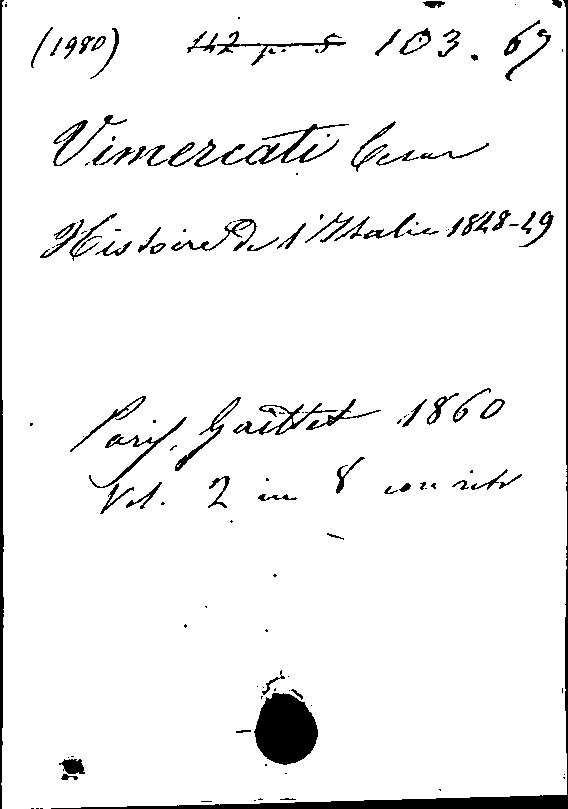 (1980) 142 p. 5 103. 67
Vimercati Cesar
Histoire De l'Italie 1848-49
Paris, Gaittet 1860
Vol. 2 in 8 con ritr